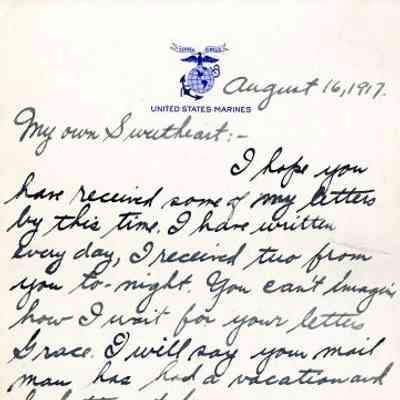 SEMPER FIDELIS
UNITED STATES MARINES
August 16, 1917.
My own Sweetheart:-
I hope you
have received some of my letters
by this time. I have written
every day, I received two from
you to-night. You can't imagin
how I wait for your letters
Grace. I will say your mail
man has had a vacation and